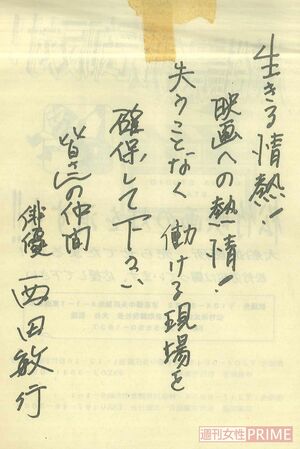 生きる情熱!
映画への熱情!
失うことなく 働ける現場を
確保して下さい
皆さんの仲間
俳優 西田敏行
週刊女性PRIME